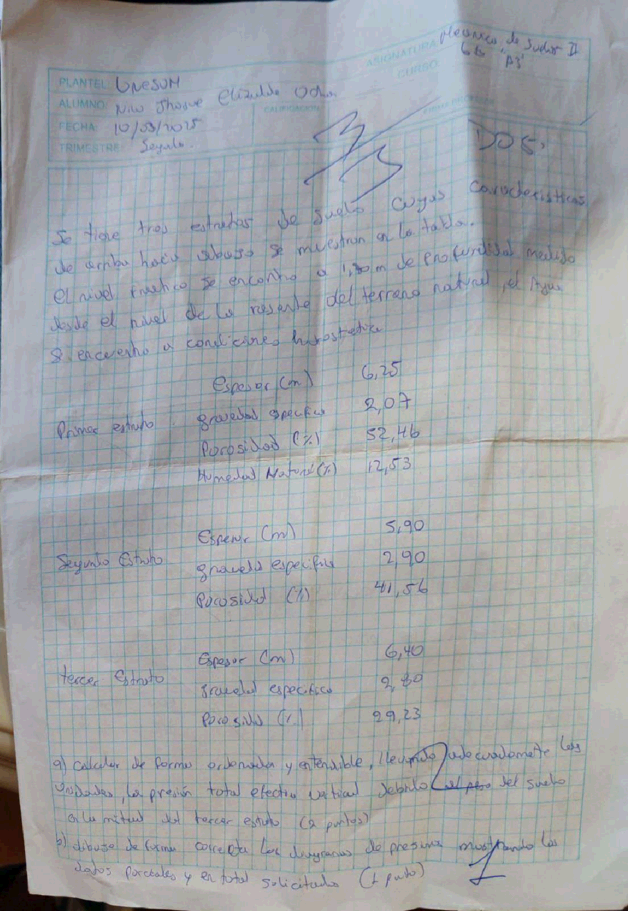 PLANTEL UNESUM
ASIGNATURA Mecánica de Suelos II
ALUMNO: Elizalde
CURSO: 6to "A"
CALIFICACIÓN
FECHA 10/03/2025
TRIMESTRE Segundo
DOS
Se tiene tres estratos de suelo cuyas características
de arriba hacia abajo se muestran en la tabla.
El nivel freático se encontro a 1,80 m de profundidad medido
desde el nivel de la rasante del terreno natural, el Agua
se encuentra a condiciones hidrostática
Espesor (m) 6,25
Primer estrato gravedad específica 2,07
Porosidad (%) 52,46
Humedad Natural (%) 12,53
Espesor (m) 5,90
Segundo Estrato gravedad específica 2,90
Porosidad (%) 41,56
Espesor (m) 6,40
tercer Estrato gravedad específica 2,80
Porosidad (%) 29,23
a) calcular de forma ordenada y entendible, llevando adecuadamente las
unidades, la presión total efectiva vertical debido al peso del suelo
en la mitad del tercer estrato (2 puntos)
b) dibuje de forma correcta los diagramas de presion mostrando los
datos parciales y en total solicitado (1 punto)